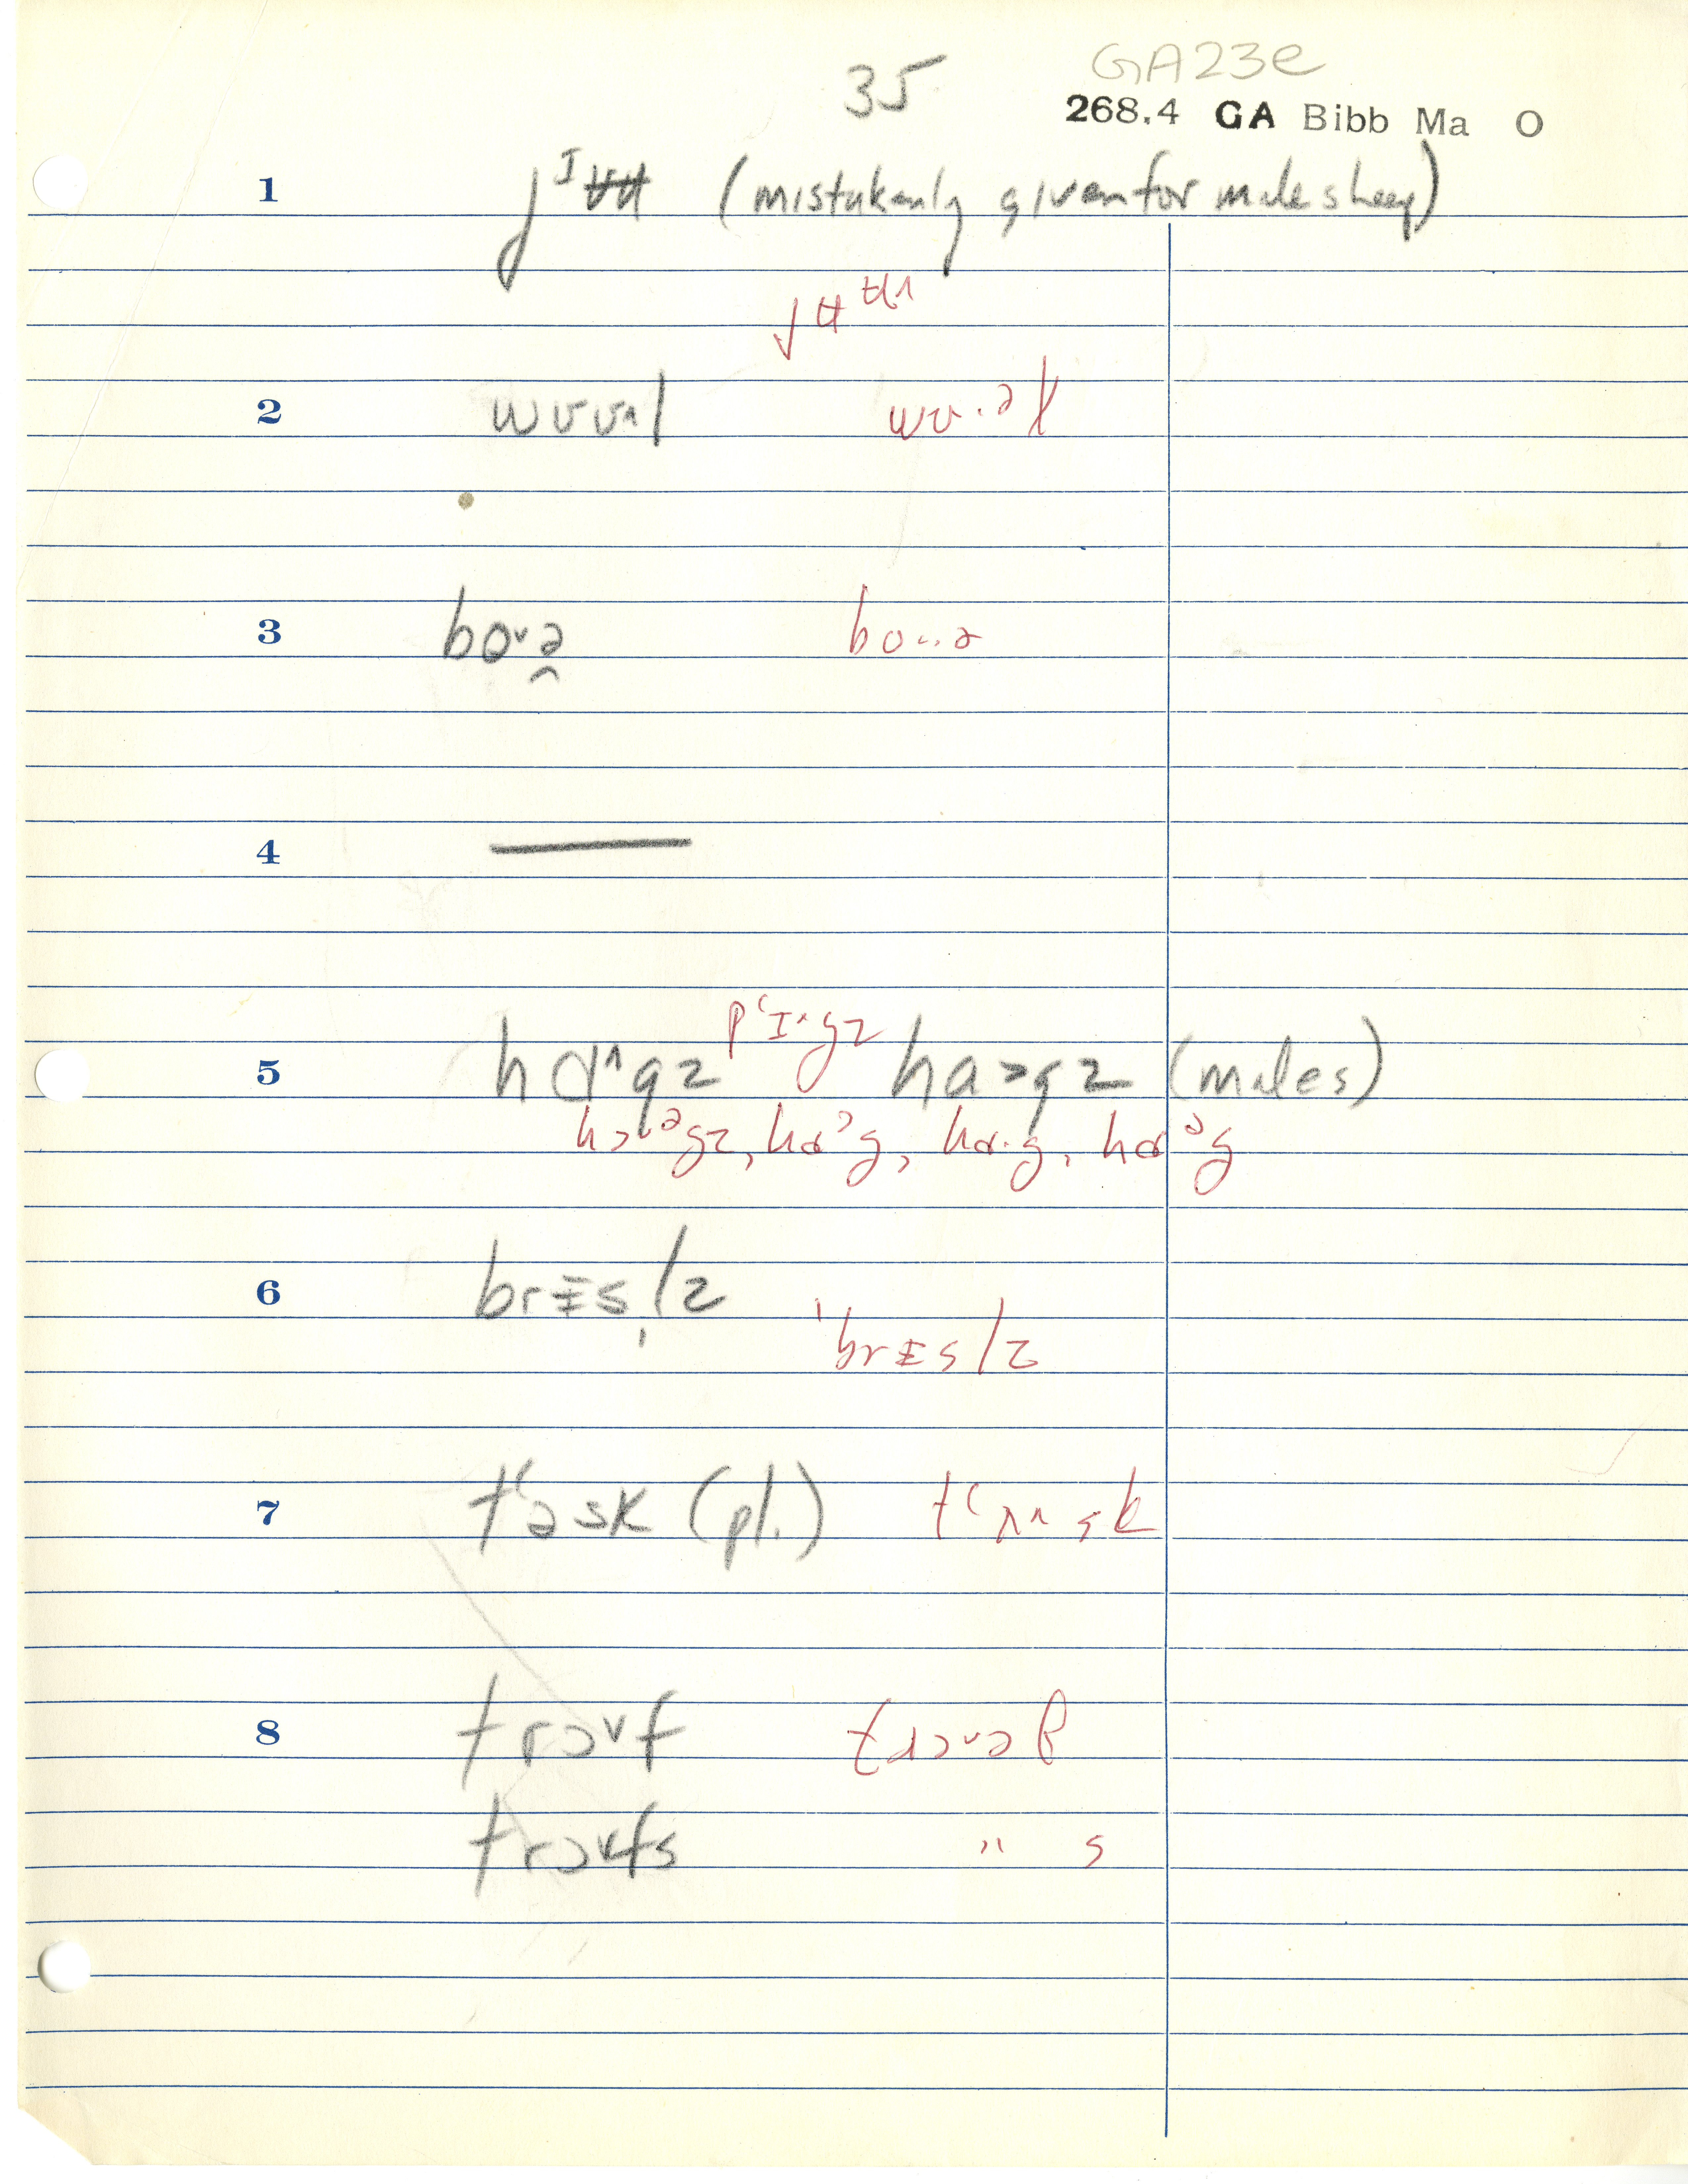 35 GA23e
268.4 GA Bibb Ma O
1 jᴵʉʉ (mistakenly given for male sheep)
jʉᵗʉ˄
2 wʊʊ˄l wʊ·əɫ
3 bo˅ə̯ bo··ə
4 —
pʻɪ˄gz
5 hɑ˄gz haɔgz (males)
hɔ˅ᵊgz, hɑᵓg, hɑ·g, hɑᵊg
6 brᵻs̩lz ˈbrᵻslz
7 tʻəsk (pl.) tʻʌ˄sk
8 trɔ˅f
trɔ˅fs " s